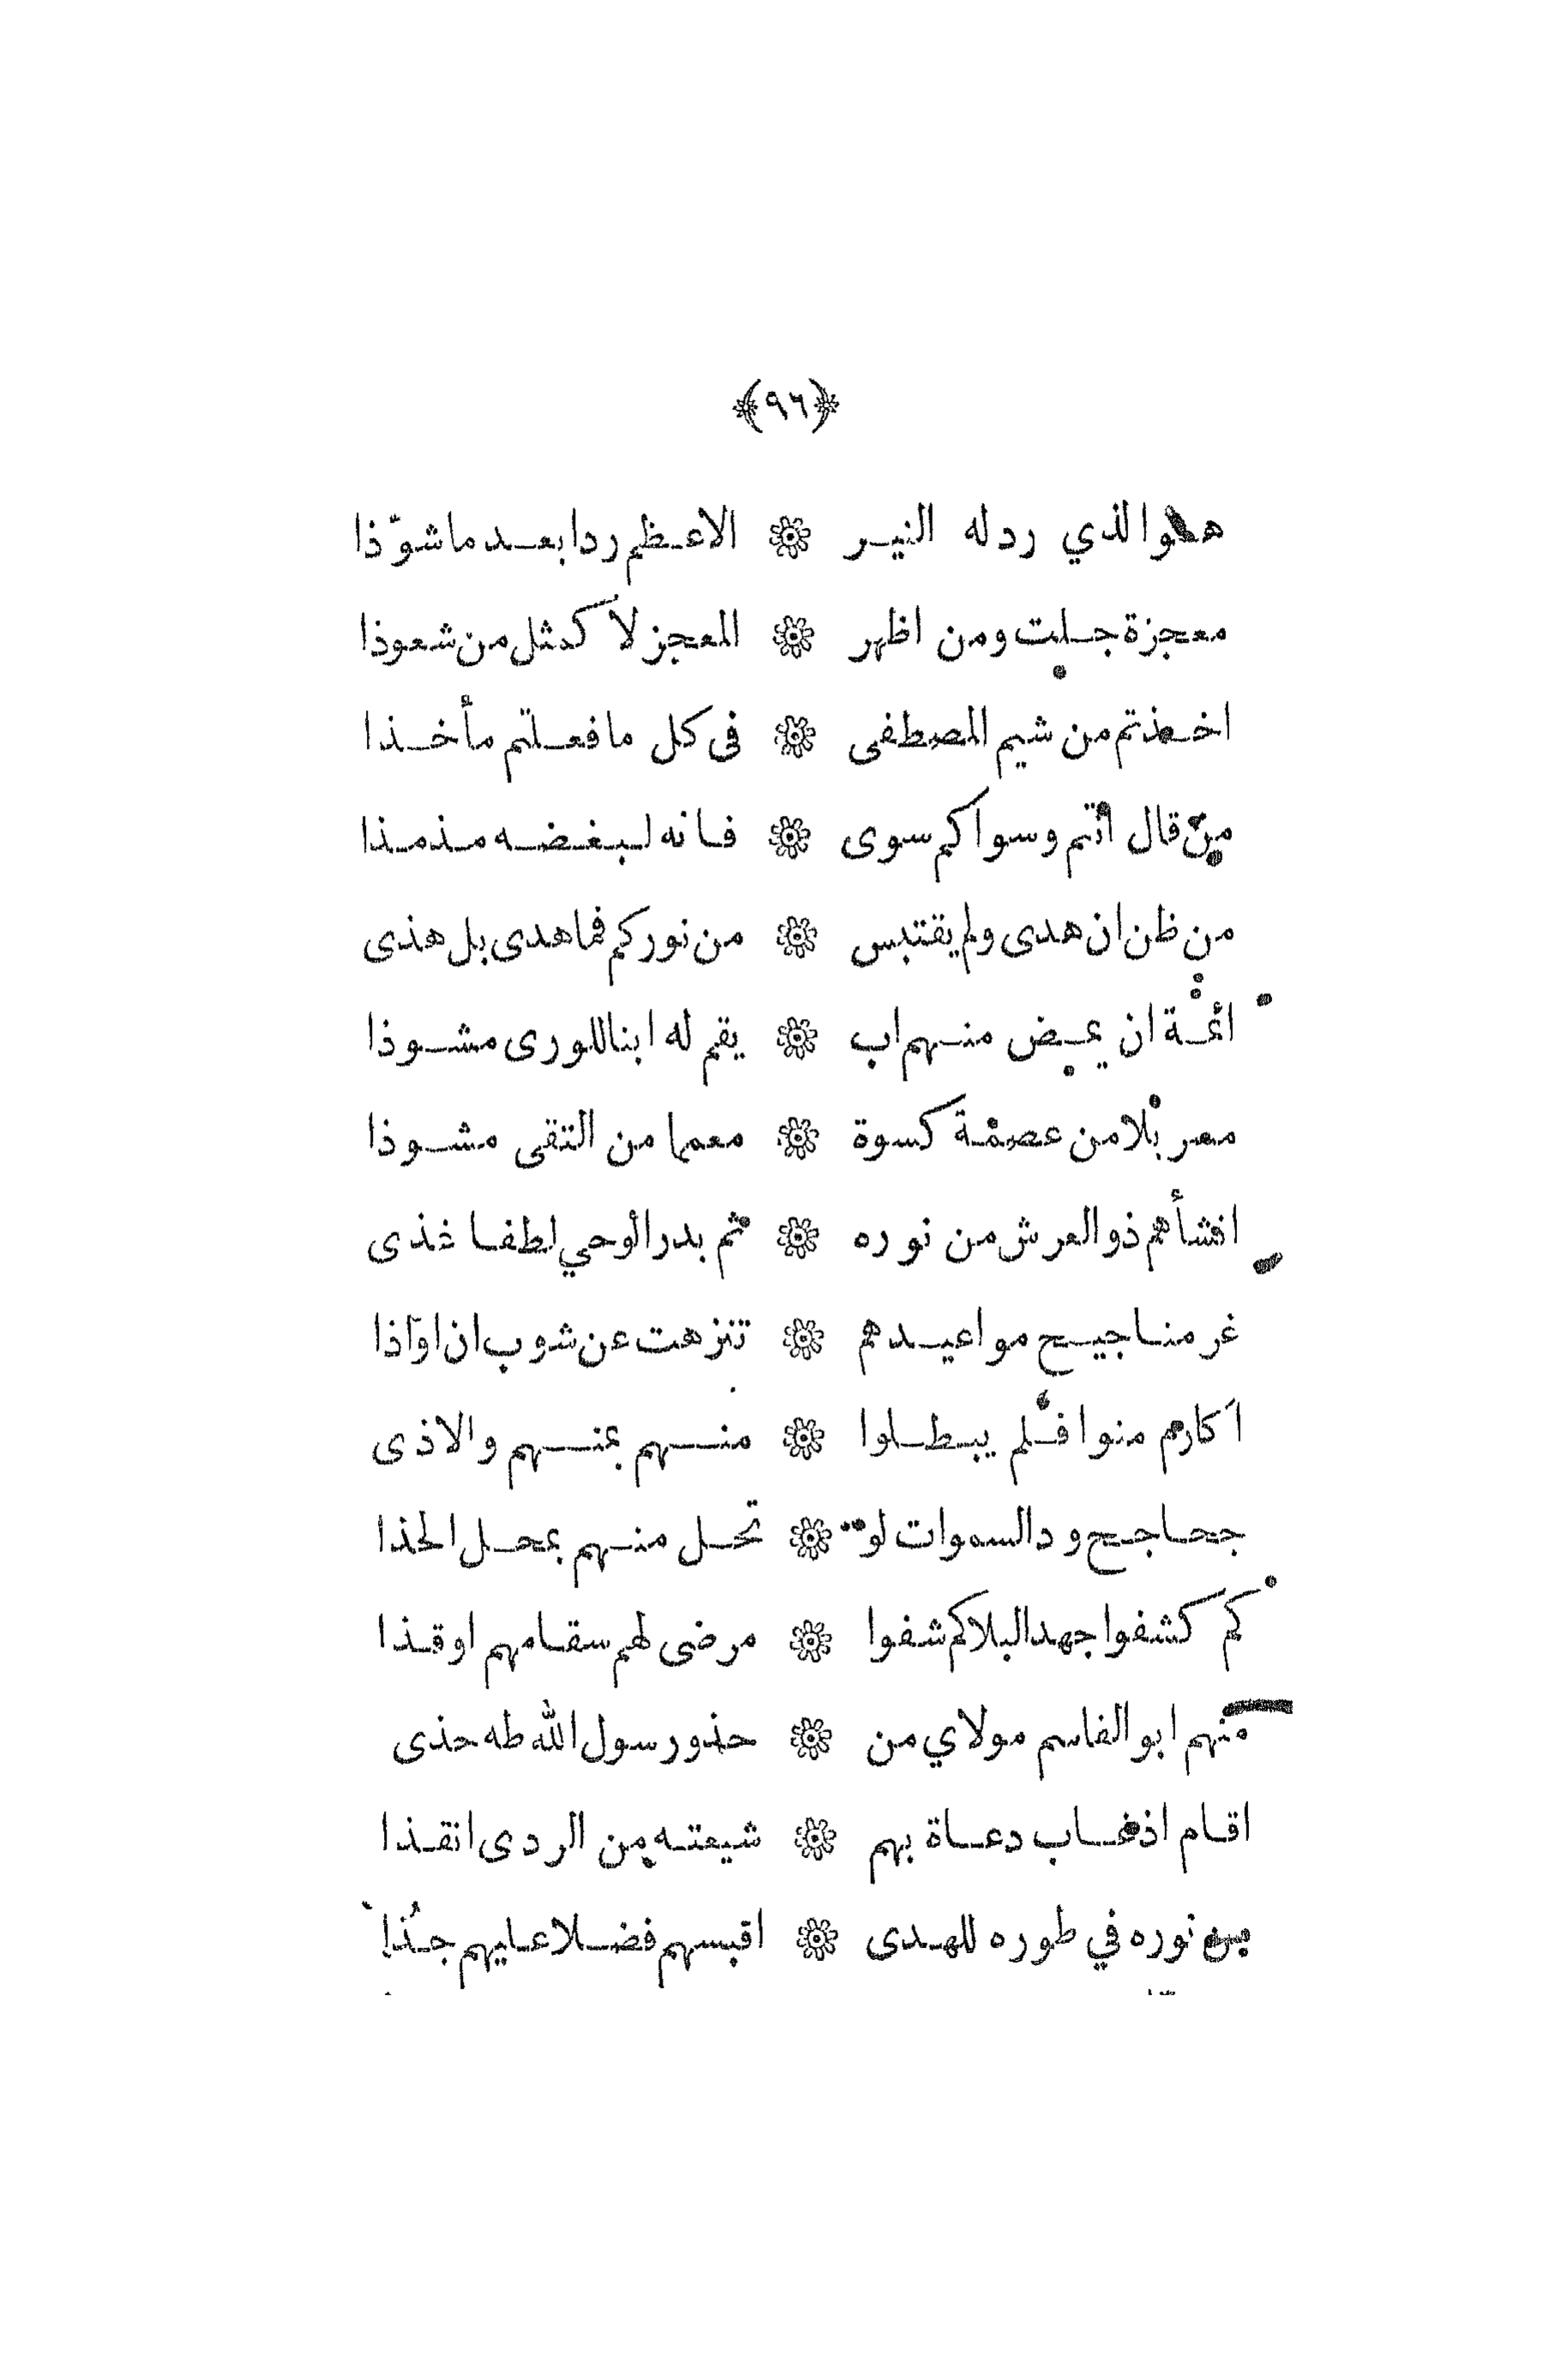 ﴿٩٦﴾
هو الذي رد له النيـر ۞ الاعـظم ردا بعـد ما شوّذا
معجزة جـلت ومن اظهر ۞ المعجز لا كمثل من شعوذا
اخـذتم من شيم المصطفى ۞ فى كل ما فعـلتم مأخـذا
من قال انتم وسواكم سوى ۞ فـانه لـبـغـضـه مـذمـذا
من ظن ان هدى ولم يقتبس ۞ من نوركم فما هدى بل هذى
ائمـة ان يمـض منـهم اب ۞ يقم له ابنا للورى مشـوذا
مسربلا من عصمـة كسوة ۞ معمما من التقى مشـوذا
انشأهم ذو العرش من نوره ۞ ثم بدر الوحي لطفـا غذى
غر منـاجيـح مواعيـدهم ۞ تنزهت عن شوب ان اوّاذا
اكارم منوا فـلم يبـطـلوا ۞ منـهم بمنـهم والاذى
جحـاجـح ود السموات لو ۞ تحـل منـهم بمحـل الحذا
كم كشفوا جهد البلا كم شفوا ۞ مرضى لهم سقـامهم اوقـذا
منهم ابو القاسم مولاي من ۞ حذو رسول الله طه حذى
اقـام اذ غـاب دعـاة بهم ۞ شيعتـه من الردى انقـذا
من نوره في طوره للهـدى ۞ اقبسهم فضـلا عـليهم جـذا